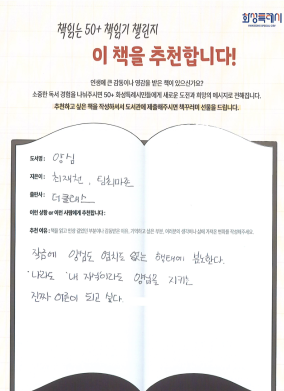 책읽는 50+ 책읽기 챌린지
화성특례시
이 책을 추천합니다!
인생에 큰 감동이나 영감을 받은 책이 있으신가요?
소중한 독서 경험을 나눠주시면 50+ 화성특례시민들에게 새로운 도전과 희망의 메시지로 전해집니다.
추천하고 싶은 책을 작성하셔서 도서관에 제출해주시면 책꾸러미 선물을 드립니다.
도서명 : 양심
지은이 : 최재천, 팀최마존
출판사 : 더클래스
어떤 상황 or 어떤 사람에게 추천합니까 :
추천 이유 : 책을 읽고 인생
작금에 양심도 염치도 없는 행태에 분노한다.
'나라도' '내 자식이라도 양심을 지키는
진짜 어른이 되고 싶다.